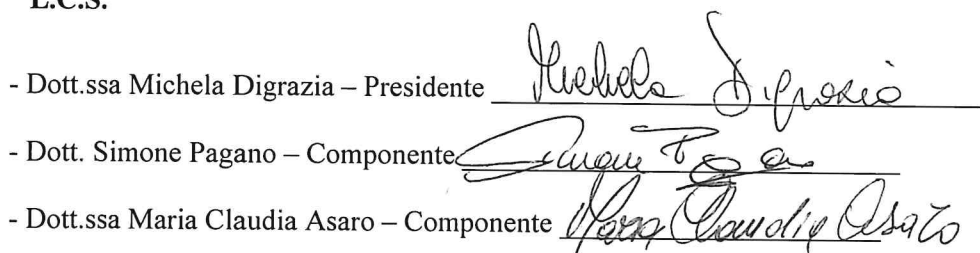 L.C.S.
- Dott.ssa Michela Digrazia – Presidente Michela Digrazia
- Dott. Simone Pagano – Componente Simone Pagano
- Dott.ssa Maria Claudia Asaro – Componente Maria Claudia Asaro